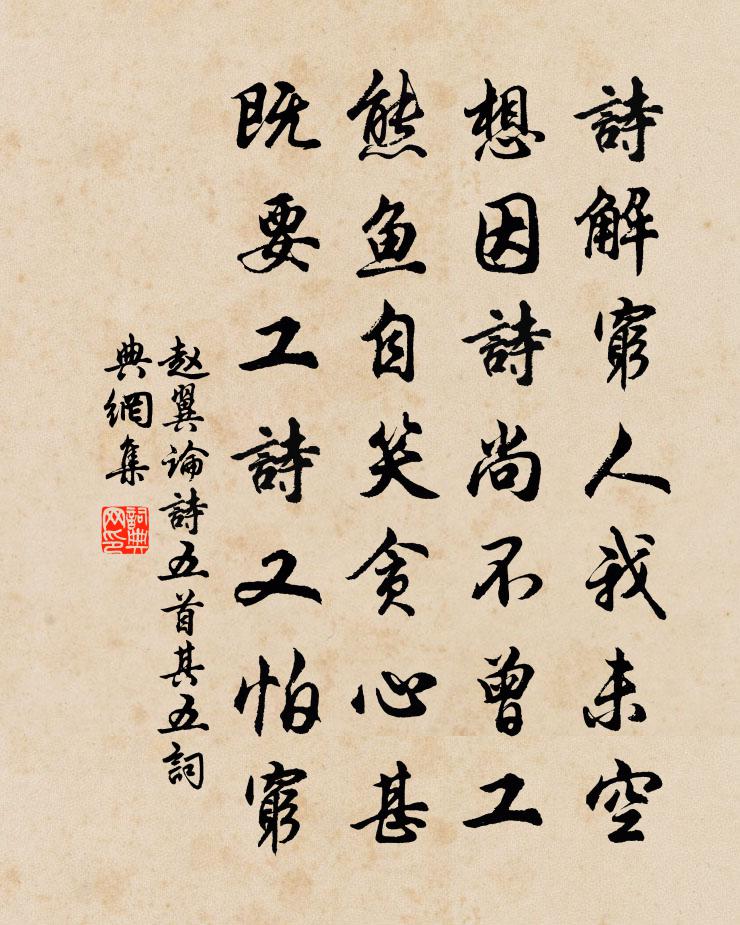 詩解窮人我未空
想因詩尚不曾工
熊魚自笑貪心甚
既要工詩又怕窮
赵翼论詩五首其五詞
典網集
詞典
网印